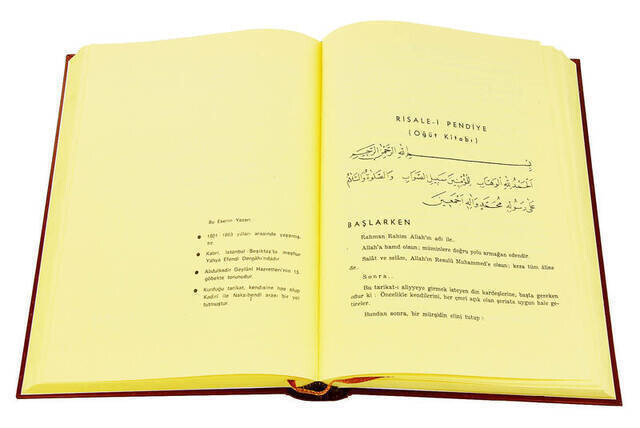 Bu Eserin Yazarı
● 1801 - 1863 yılları arasında yaşamış-
tır.
● Kabri, İstanbul - Beşiktaş'ta meşhur
Yahya Efendi Dergâhı'ndadır.
● Abdulkadir Geylânî Hazretleri'nin 15.
göbekte torunudur.
● Kurduğu tarikat, kendisine has olup
Kadirî ile Nakşibendî arası bir yol
tutmuştur.
RISALE-İ PENDİYE
(Öğüt Kitabı)
بِسْمِ اللهِ الرَّحْمٰنِ الرَّحِيمِ
اَلْحَمْدُ لِلّٰهِ الْوَهَّابِ لِلْمُؤْمِنِينَ سَبِيلَ الصَّوَابِ وَالصَّلٰوةُ وَالسَّلَامُ
عَلٰى رَسُولِهِ مُحَمَّدٍ وَاٰلِهِ اَجْمَعِينَ
BAŞLARKEN
Rahman Rahim Allah'ın adı ile.
Allah'a hamd olsun; müminlere doğru yolu armağan edendir.
Salât ve selâm, Allah'ın Resulü Muhammed'e olsun; keza tüm âline
de.
Sonra..
Bu tarikat-ı aliyyeye girmek isteyen din kardeşlerine, başta gereken
odur ki : Öncelikle kendilerini, her çeri açık olan şeriata uygun hale ge-
tireler.
Bundan sonra, bir mürşidin elini tutup :